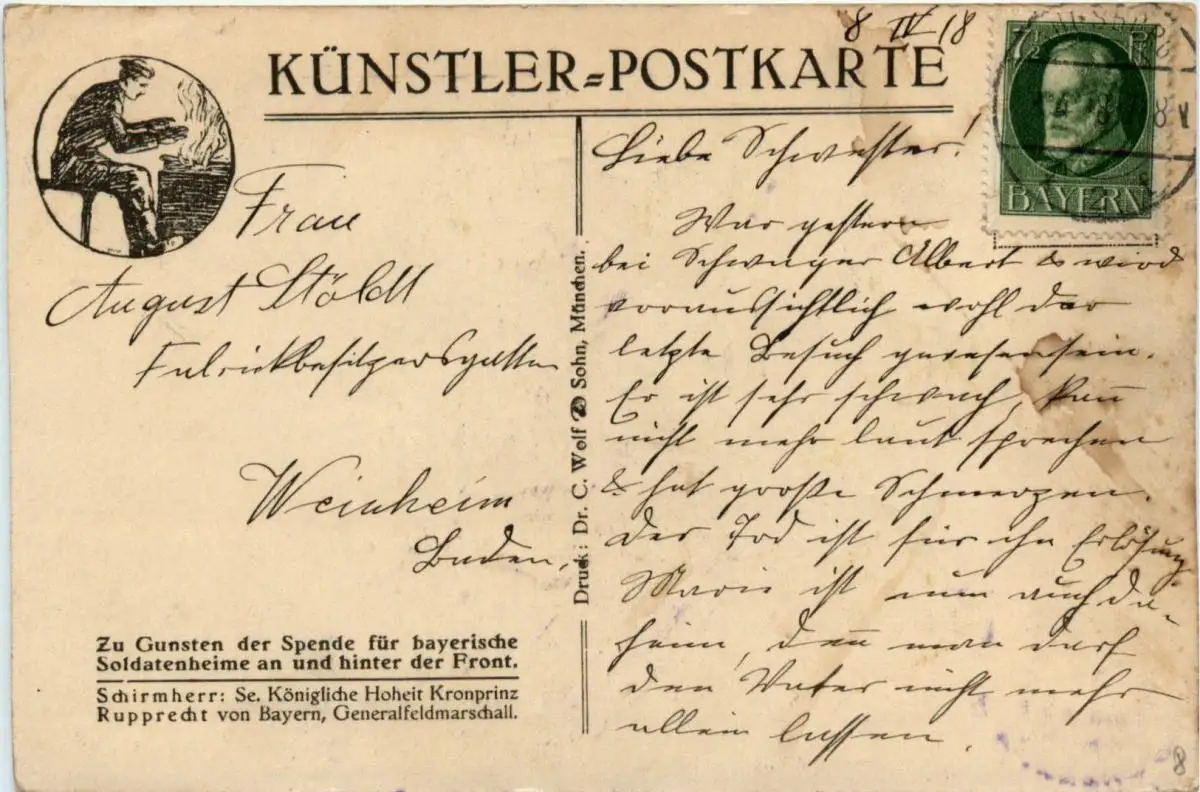 8 IV 18
KÜNSTLER=POSTKARTE
7½ Pf
BAYERN
Frau
August Stöldt
Fabrikbesitzersgattin
Weinheim
Baden.
Zu Gunsten der Spende für bayerische
Soldatenheime an und hinter der Front.
Schirmherr: Se. Königliche Hoheit Kronprinz
Rupprecht von Bayern, Generalfeldmarschall.
Druck: Dr. C. Wolf & Sohn, München.
Liebe Schwester!
War gestern
bei Schwager Albert & wird
voraussichtlich wohl der
letzte Besuch gewesen sein.
Er ist sehr schwach, kan̅
nicht mehr laut sprechen
& hat große Schmerzen.
Der Tod ist für ihn Erlösung
Marie ist nun auch da-
heim, den̅ man darf
den Vater nicht mehr
allein lassen.
8